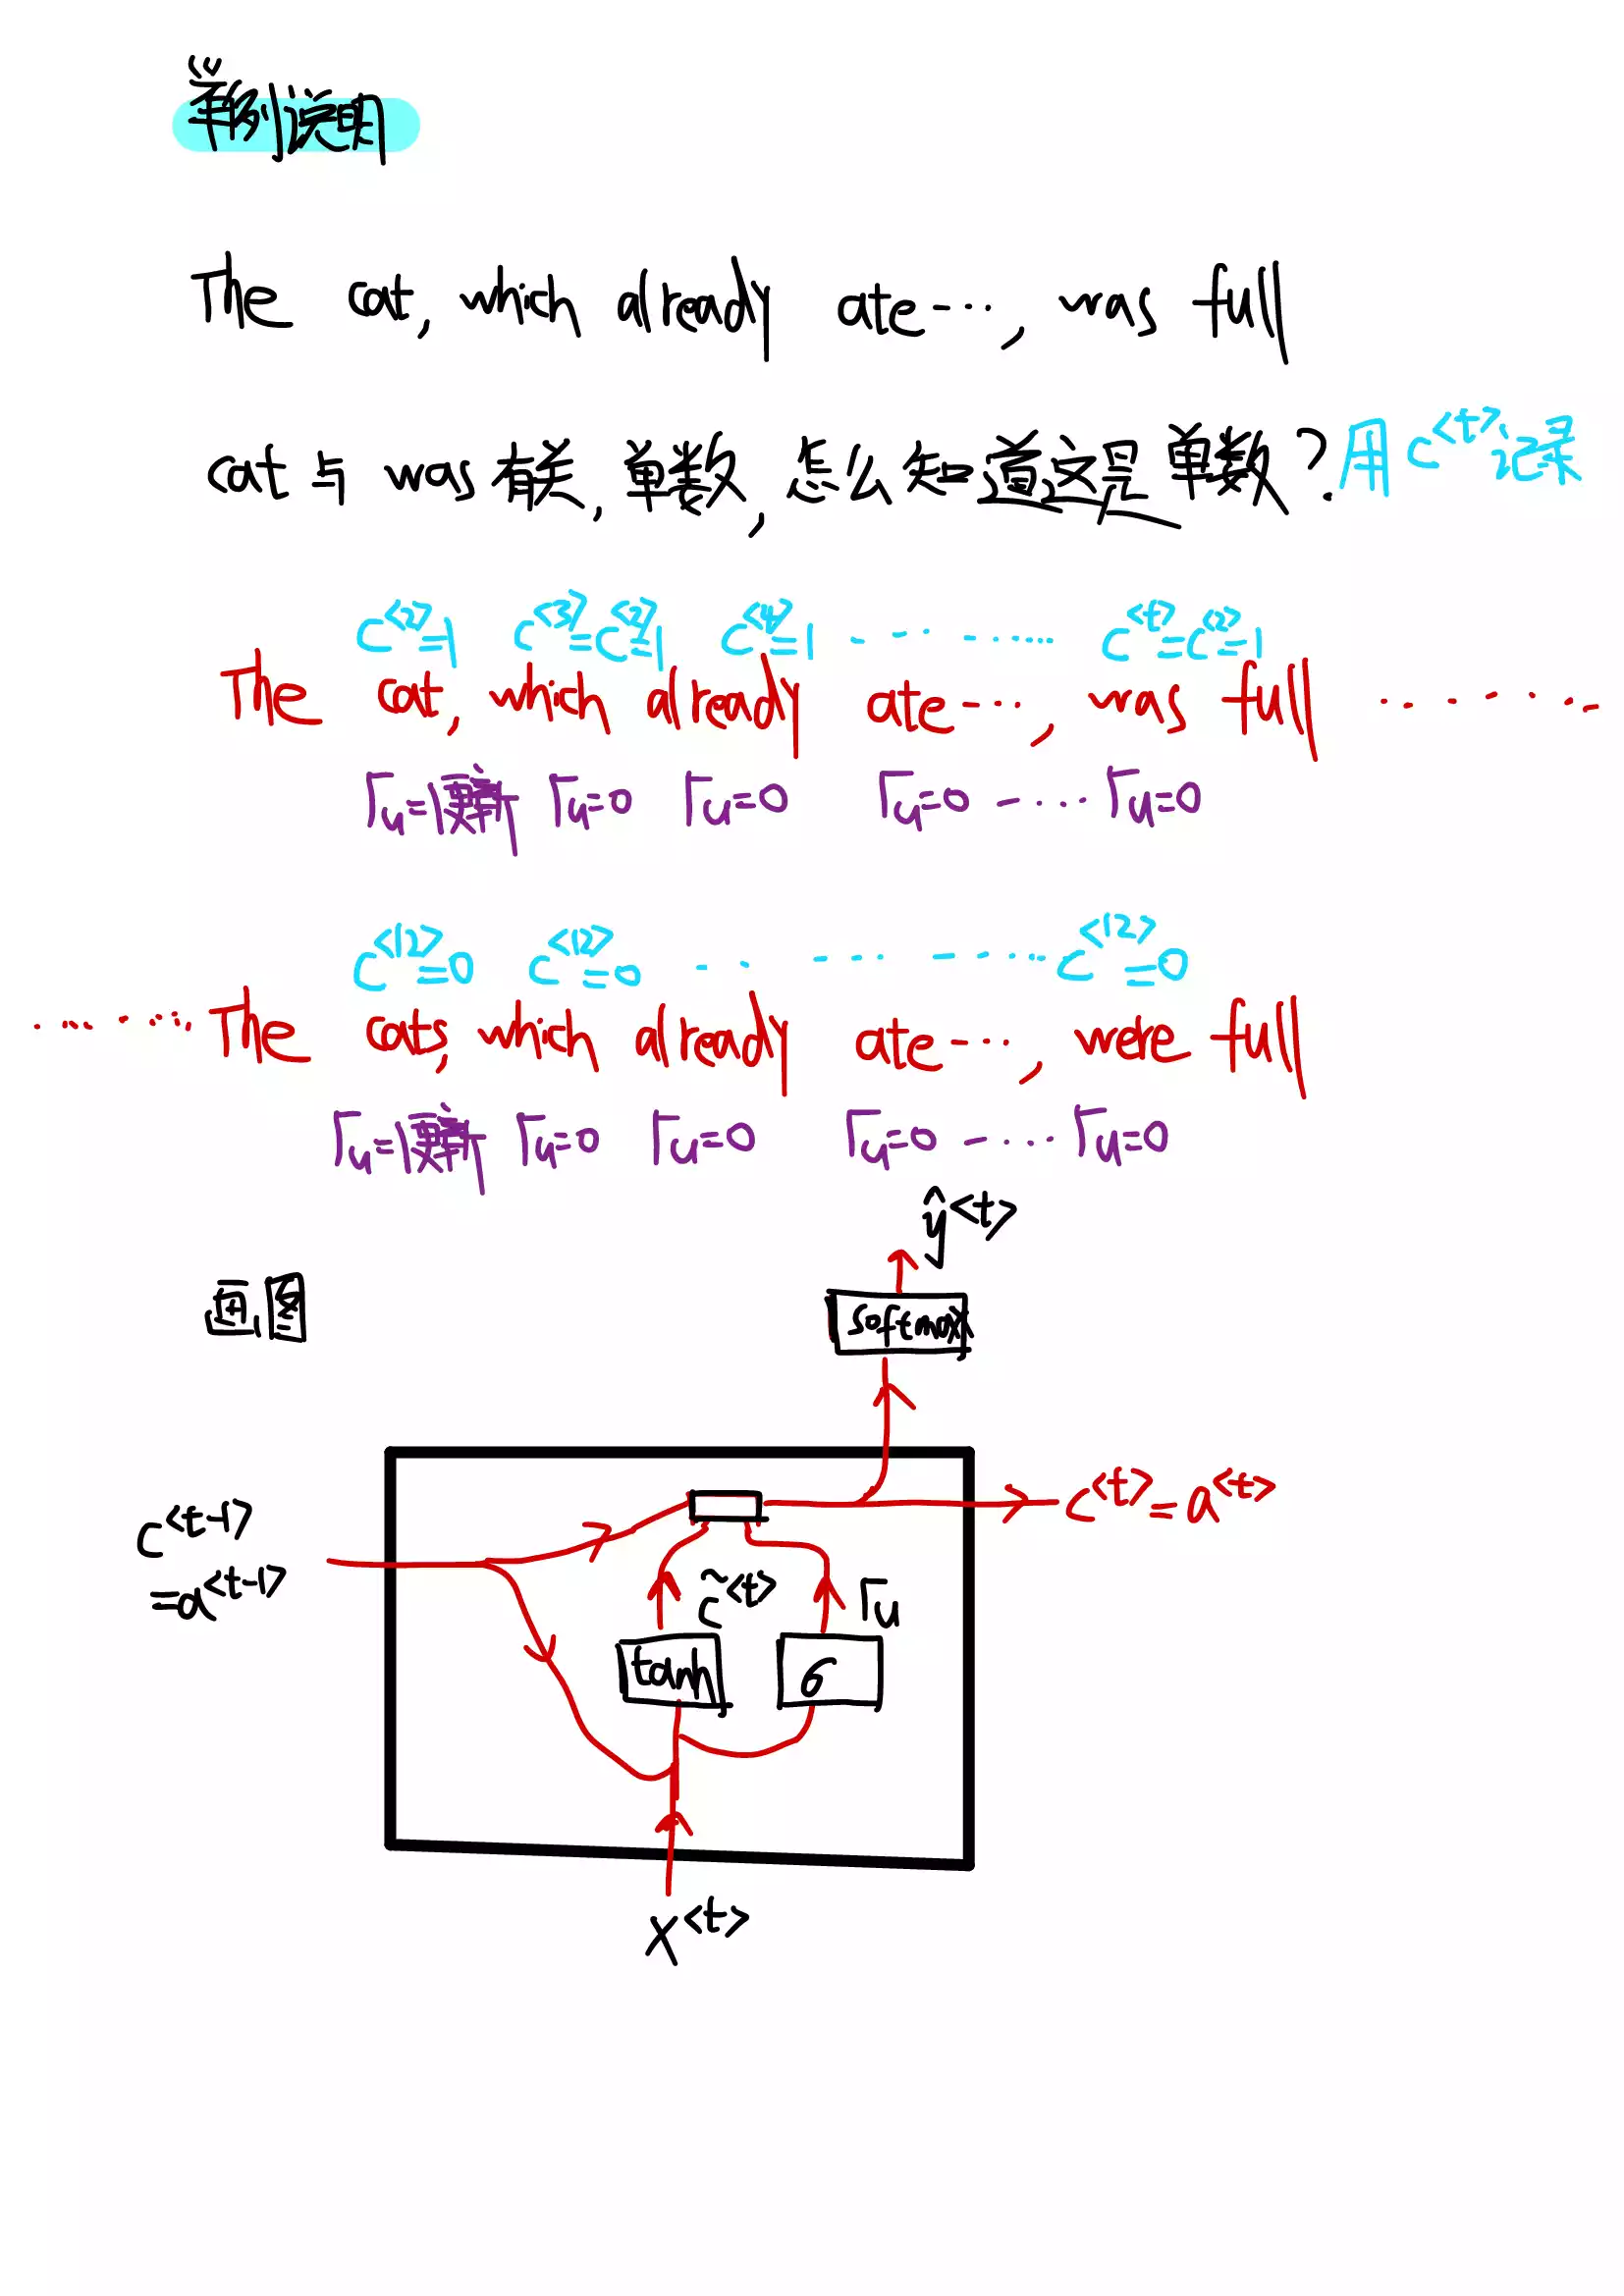 举例说明
The cat, which already ate ..., was full
cat与was有关,单数,怎么知道这是单数?用c<t>记录
c<2>=1 c<3>=c<2>=1 c<4>=1 ......... c<t>=c<2>=1
The cat, which already ate ..., was full .......
Γu=1更新 Γu=0 Γu=0 Γu=0 ..... Γu=0
c<12>=0 c<12>=0 .......... c<12>=0
....... The cats, which already ate ..., were full
Γu=1更新 Γu=0 Γu=0 Γu=0 ..... Γu=0
ŷ<t>
画图
softmax
c<t-1>
=a<t-1>
c<t>=a<t>
c̃<t> Γu
tanh σ
x<t>